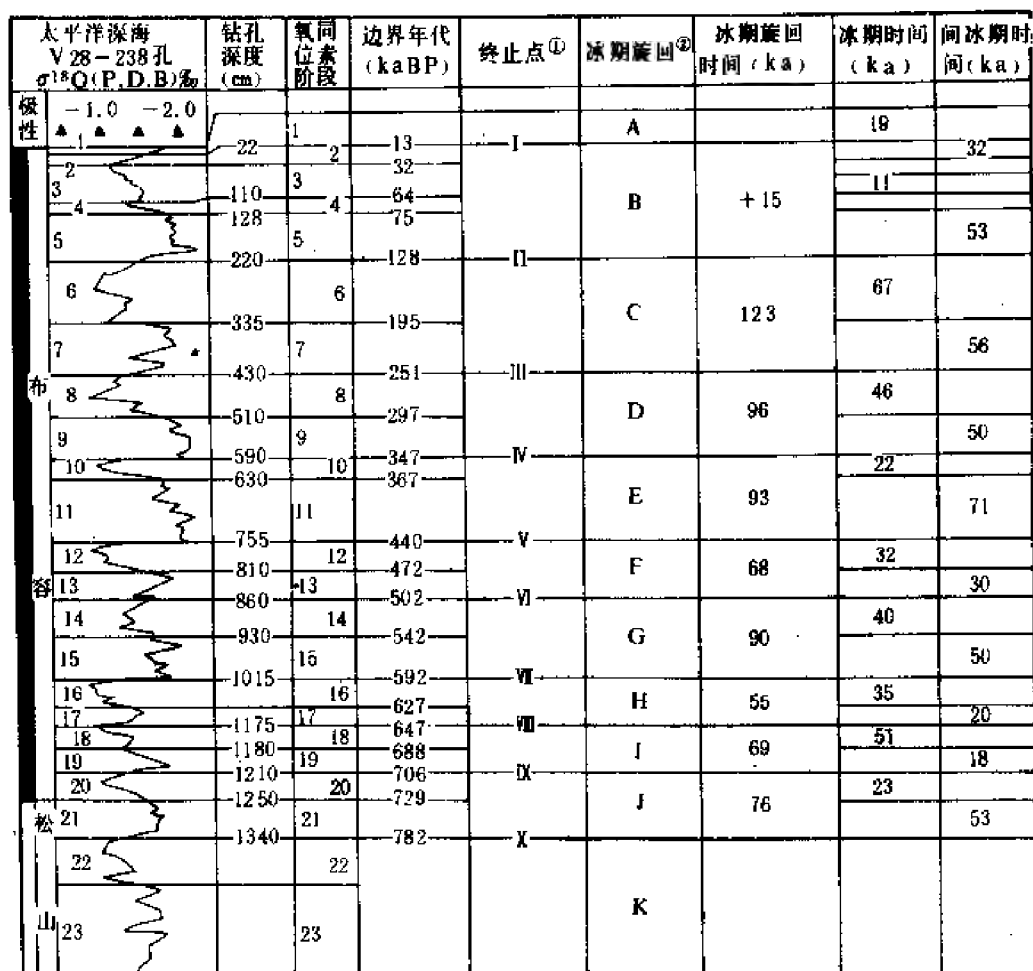 太平洋深海 V28-238孔 σ¹⁸Q(P.D.B)‰ 钻孔深度(cm) 氧同位素阶段 边界年代(kaBP) 终止点① 冰期旋回② 冰期旋回时间(ka) 冰期时间(ka) 间冰期时间(ka)
极性 -1.0 -2.0
1 22 1 13 I A 19
2 2 32 32
3 110 3 64 11
4 128 4 75 B +15
5 220 5 128 II 53
6 335 6 195 C 123 67
7 430 7 251 III 56
8 510 8 297 D 96 46
9 590 9 347 IV 50
10 630 10 367 22
11 755 11 440 V E 93 71
12 810 12 472 F 68 32
13 860 13 502 VI 30
14 930 14 542 G 90 40
15 1015 15 592 VII 50
16 16 627 H 55 35
17 1175 17 647 VIII 20
18 1180 18 688 I 69 51
19 1210 19 706 IX 18
20 1250 20 729 J 76 23
21 1340 21 782 X 53
22 22
23 23 K
布容
松山